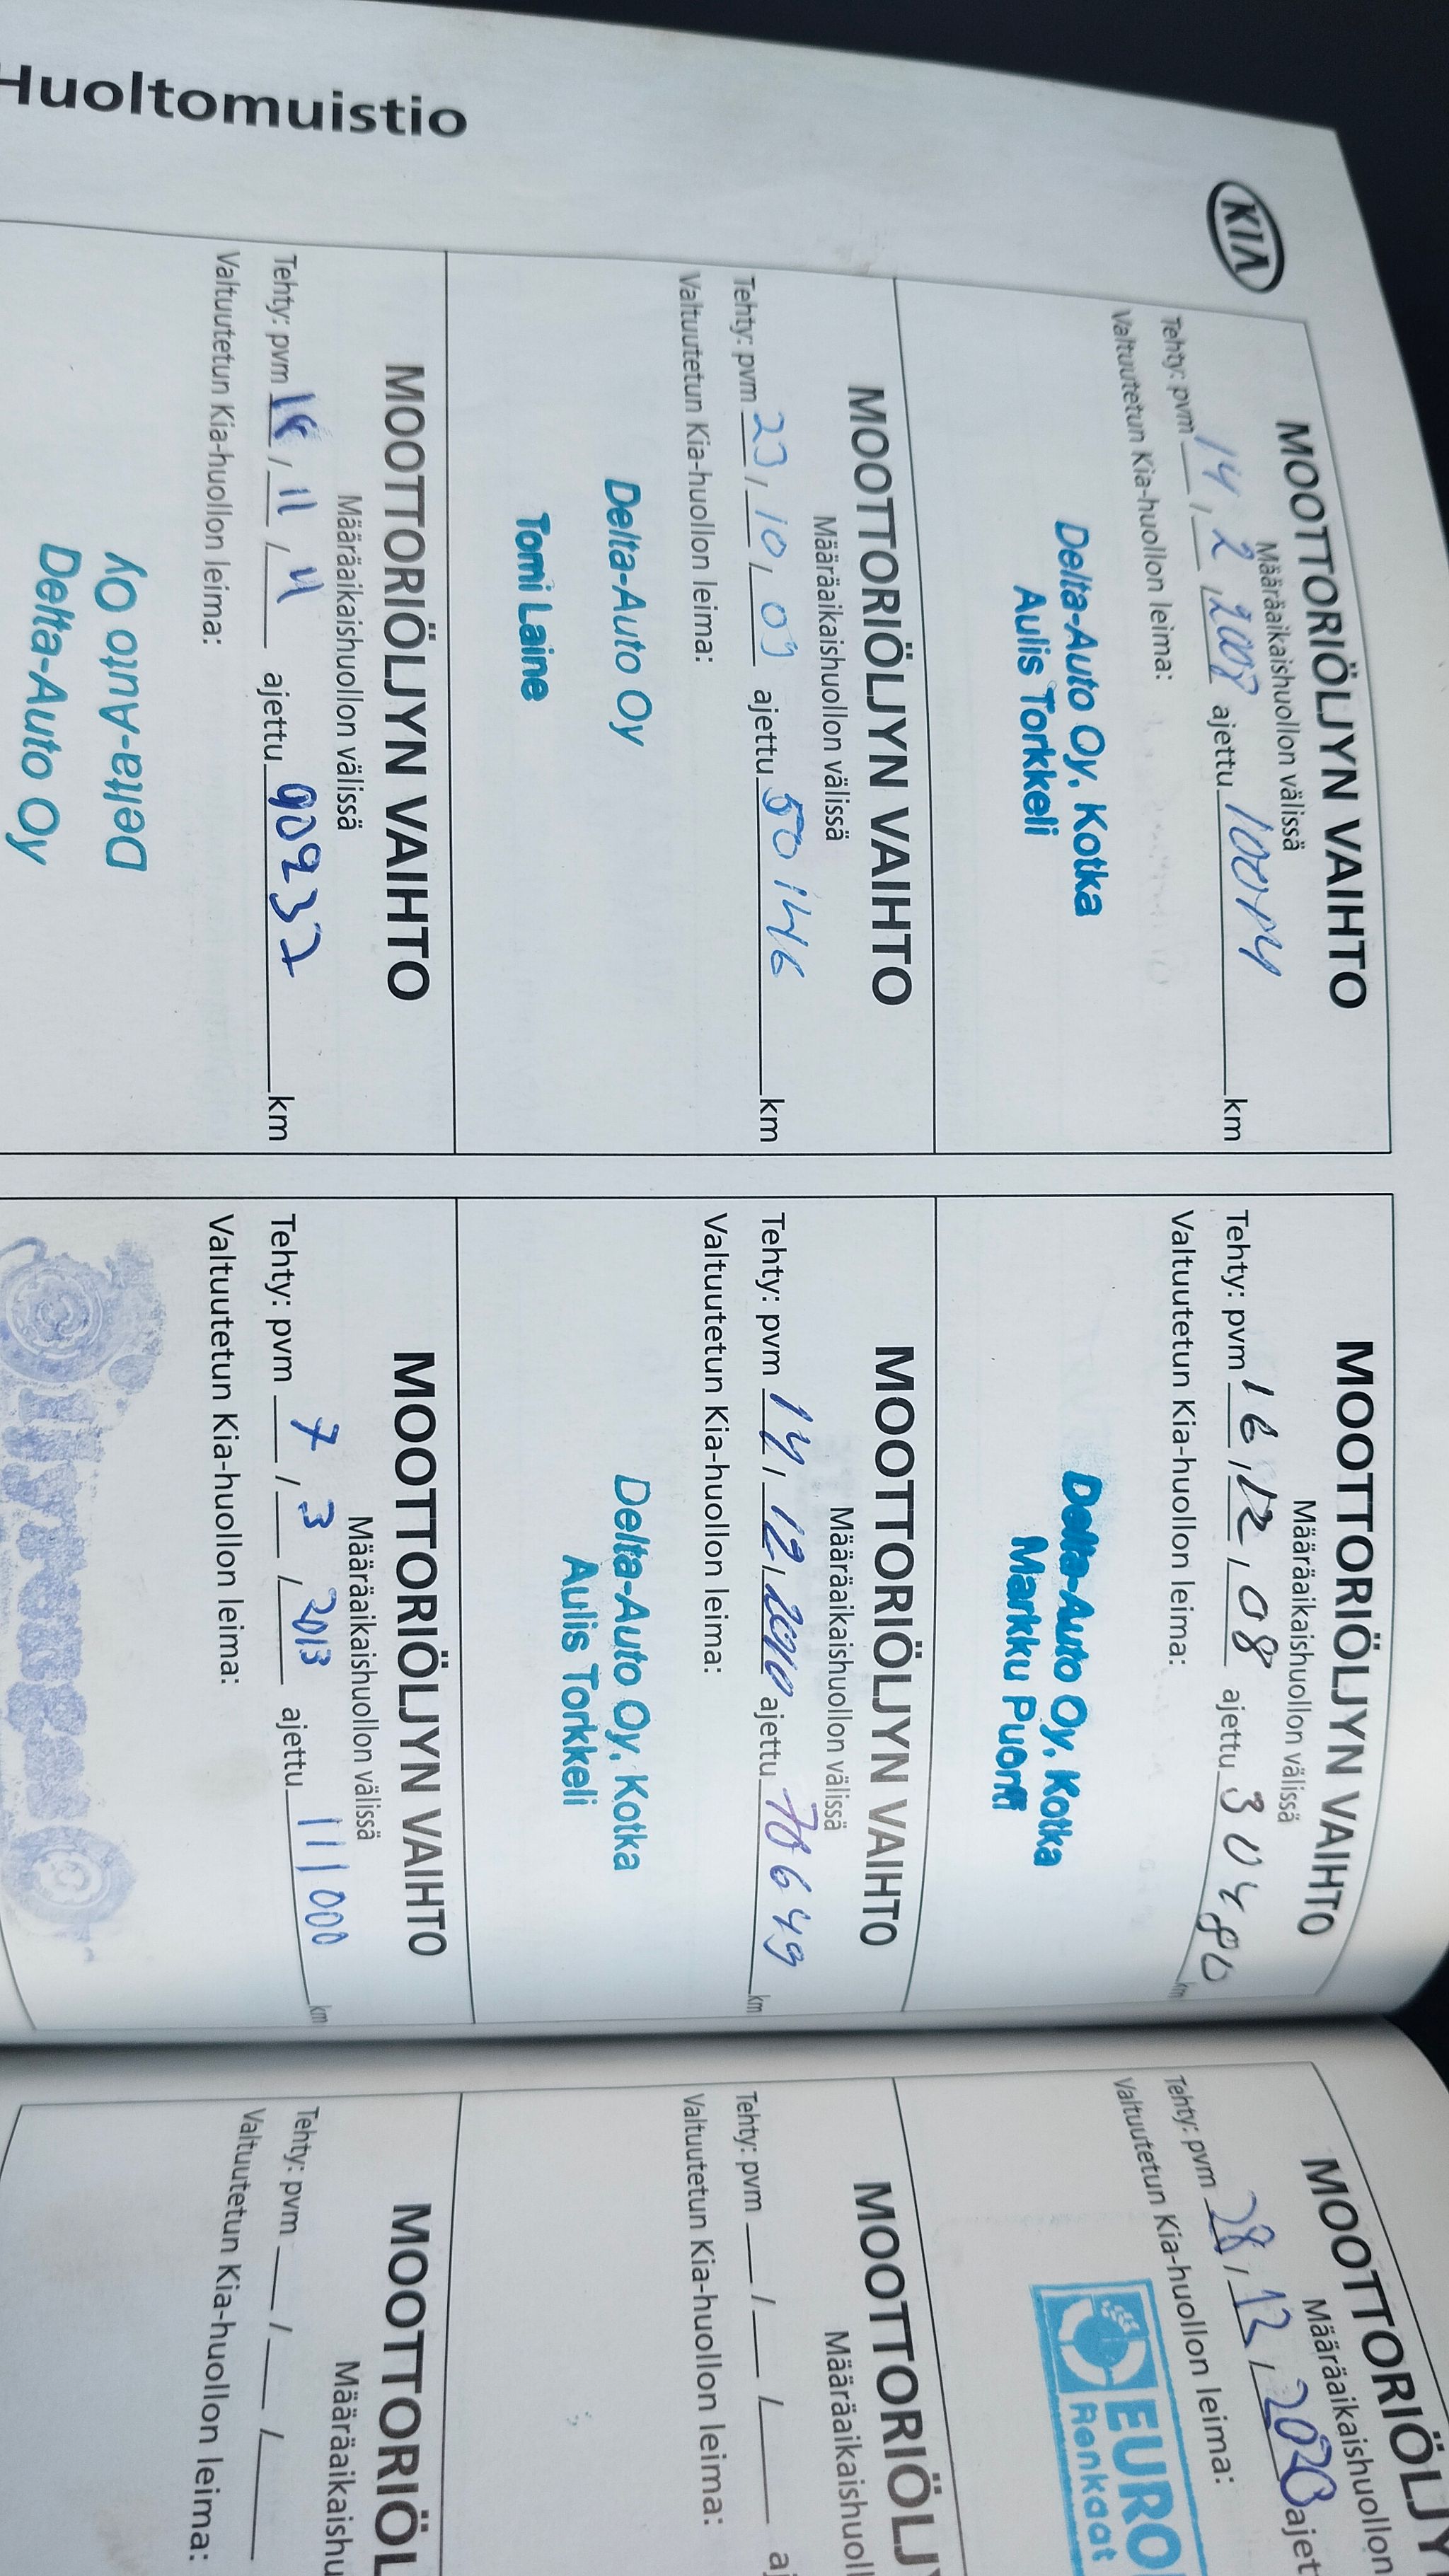 Huoltomuistio
KIA
MOOTTORIÖLJYN VAIHTO
Määräaikaishuollon välissä
Tehty: pvm 14 / 2 / 2008 ajettu km
Valtuutetun Kia-huollon leima:
Delta-Auto Oy, Kotka
Aulis Torkkeli
MOOTTORIÖLJYN VAIHTO
Määräaikaishuollon välissä
Tehty: pvm 16 / 12 / 08 ajettu 30480 km
Valtuutetun Kia-huollon leima:
Delta-Auto Oy, Kotka
Markku Puonti
MOOTTORIÖLJYN VAIHTO
Määräaikaishuollon välissä
Tehty: pvm 23 / 10 / 09 ajettu 50146 km
Valtuutetun Kia-huollon leima:
Delta-Auto Oy
Tomi Laine
MOOTTORIÖLJYN VAIHTO
Määräaikaishuollon välissä
Tehty: pvm 14 / 12 / 2010 ajettu 70649 km
Valtuutetun Kia-huollon leima:
Delta-Auto Oy, Kotka
Aulis Torkkeli
MOOTTORIÖLJYN VAIHTO
Määräaikaishuollon välissä
Tehty: pvm / 11 / 11 ajettu 90237 km
Valtuutetun Kia-huollon leima:
Delta-Auto Oy
Delta-Auto Oy
MOOTTORIÖLJYN VAIHTO
Määräaikaishuollon välissä
Tehty: pvm 7 / 3 / 2013 ajettu 111000 km
Valtuutetun Kia-huollon leima:
MOOTTORIÖLJY
Määräaikaishuollon
Tehty: pvm 28 / 12 / 2020 ajet
Valtuutetun Kia-huollon leima:
EURO
Renkaat
MOOTTORIÖLJY
Määräaikaishuol
Tehty: pvm / / aj
Valtuutetun Kia-huollon leima:
MOOTTORIÖL
Määräaikaishu
Tehty: pvm / /
Valtuutetun Kia-huollon leima: